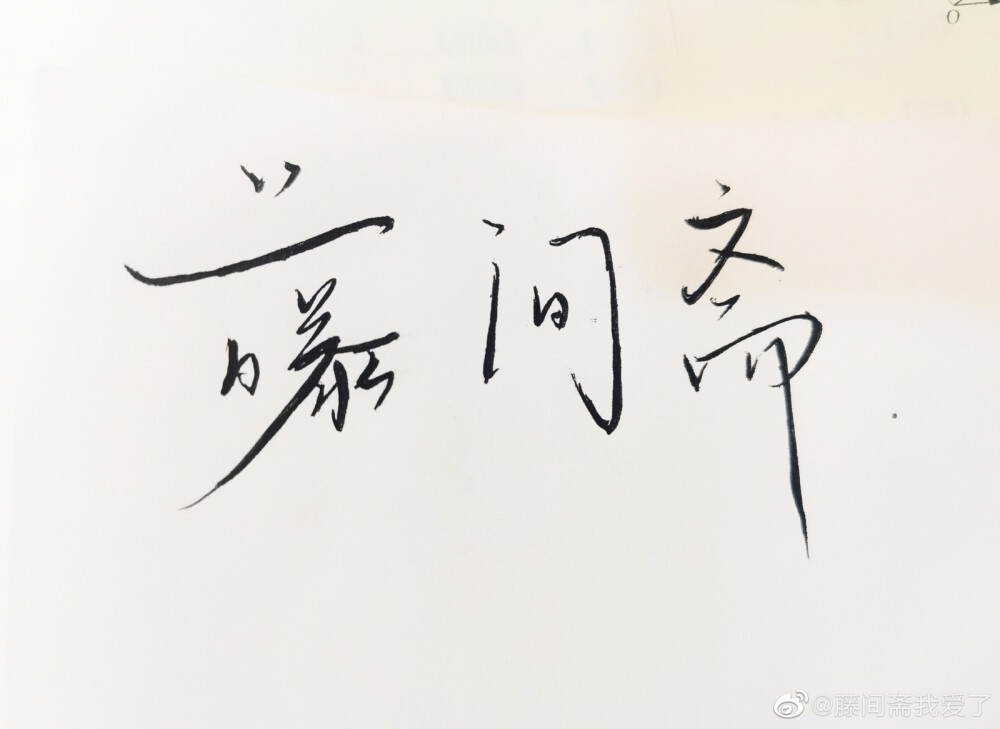 藤间斋
@藤间斋我爱了